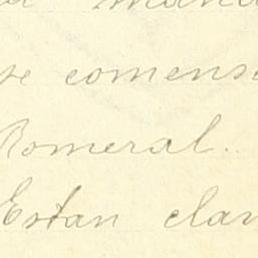 se comens
Romeral.
Estan clar